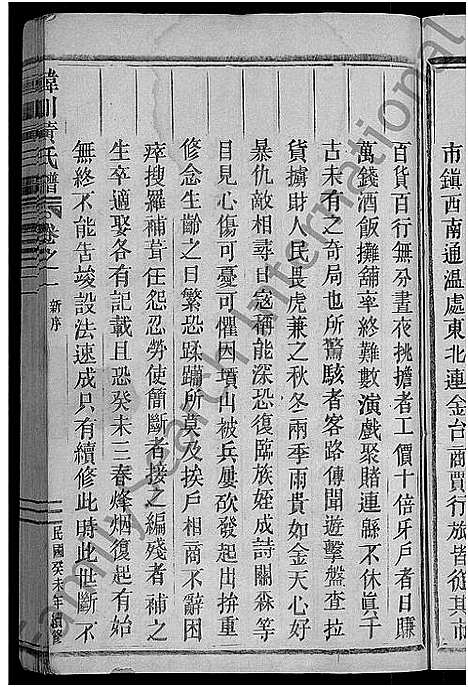 市鎮西南通溫處東北連金台商賈行旅皆從其市
百貨百行無分晝夜挑擔者工價十倍牙戶者日賺
萬錢酒飯攤舖率終難數演戲聚賭連縣不休眞千
古未有之奇局也所驚駭者客路傳聞遊擊盤查拉
貨擄財人民畏虎兼之秋冬兩季雨貴如金天心好
暴仇敵相尋日寇稱能深恐復臨族姪成詩關森等
目見心傷可憂可懼因墳山被兵屢砍發起出拚重
修念生齡之日繁恐蹂躪所莫及挨戶相商不辭困
瘁搜羅補葺任怨忍勞使簡斷者接之編殘者補之
生卒適娶各有記載且恐癸未三春烽烟復起有始
無終不能吿竣設法速成只有續修此時此世斷不
黃氏譜
卷之一
新序
民國癸未年續修
Family Search International